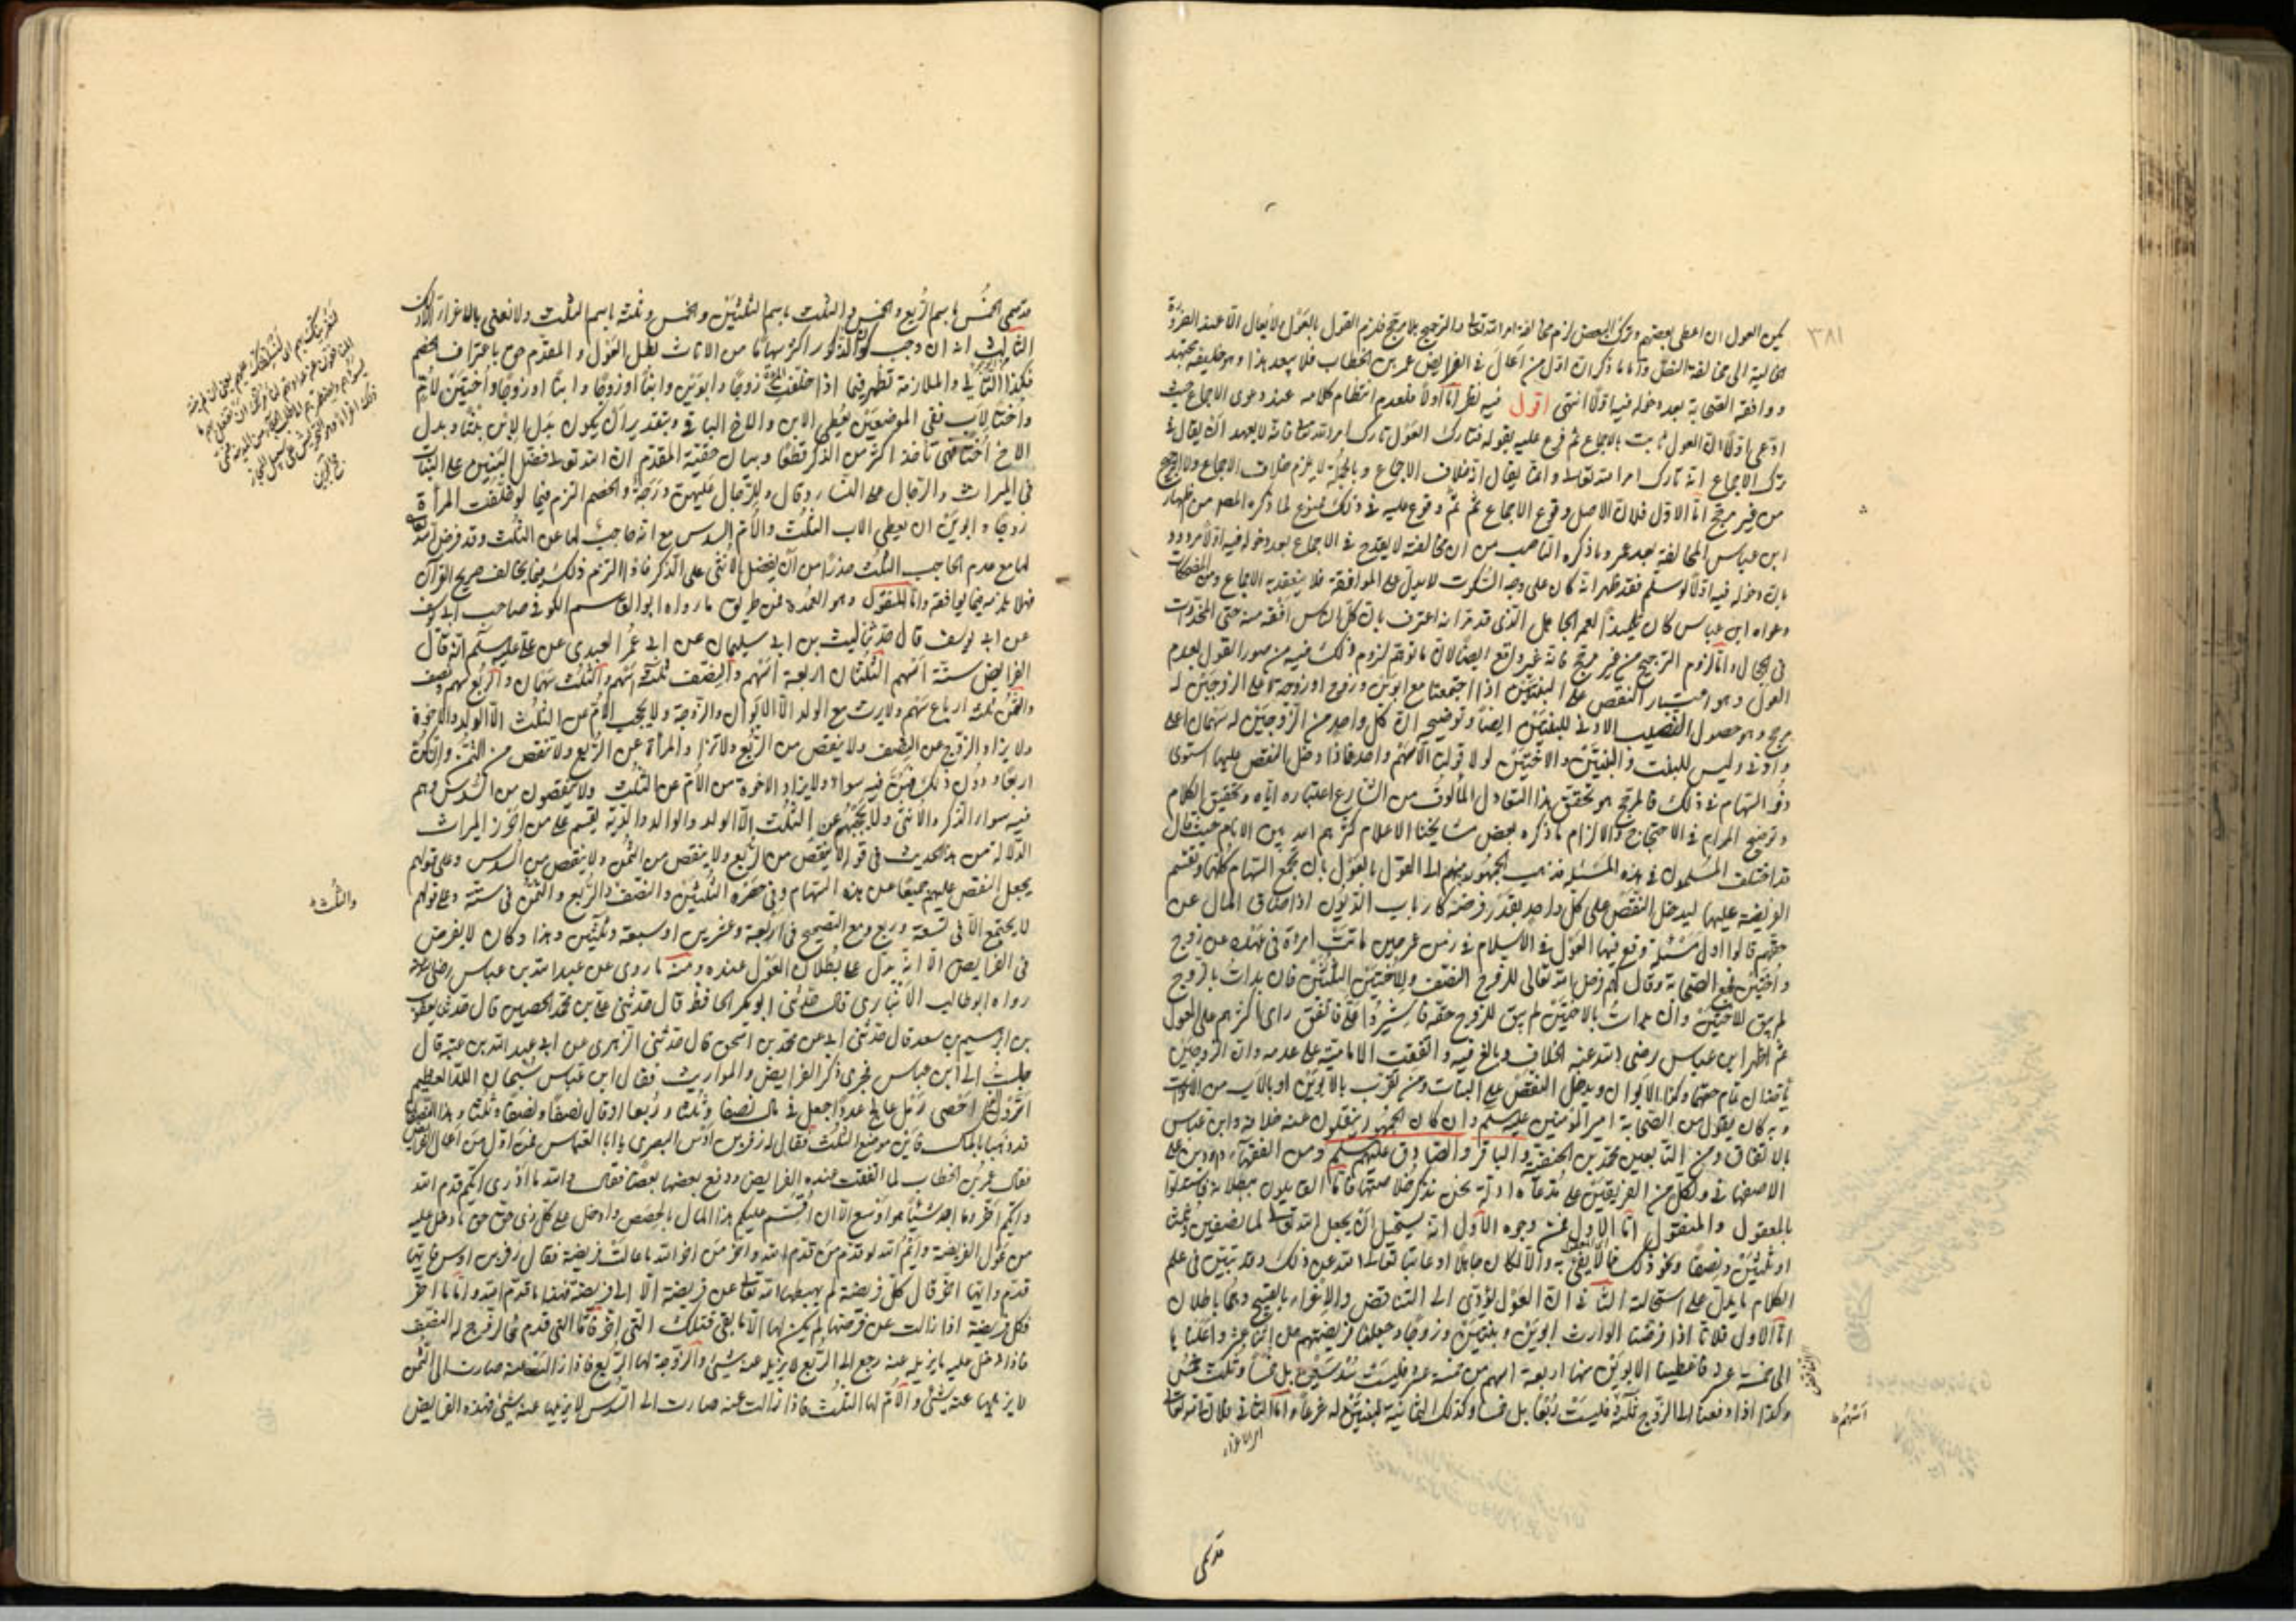 ٣٨١
يمكن العول ان اعطى بعضهم وترك البعض لزم مخالفة امر الله تعالى والترجيح بلا مرجح فلزم القول بالعول لا يقال الا عند الضرورة
الى مخالفة النقل واما ما ذكر ان اول من اعال في الفرايض عمر بن الخطاب فلا يبعد هذا وهو خليفة مجتهد
ووافقه الصحابة بعد دخوله فيها اولا انتهى اقول فيه نظر اما اولا فلعدم انتظام كلامه عند دعوى الاجماع حيث
ادعى اولا ان العول ثابت بالاجماع ثم فرع عليه بقوله فتارك العول تارك امر الله تعالى فانه لا يعهد ان يقال في
ترك الاجماع انه تارك امر الله تعالى وانما يقال انه خلاف الاجماع وبالجملة لا يلزم خلاف الاجماع ولا الترجيح
من غير مرجح اما الاول فلان الاصل وقوع الاجماع ثم وقوع عليه في ذلك ممنوع لما ذكره المصـ من اظهار
ابن عباس المخالفة بعد عمر وما ذكره الناصب من ان مخالفته لا يقدح في الاجماع بعد دخوله فيه اولا مردود
بان دخوله فيه اولا لو سلم فقد ظهر انه كان على وجه السكوت لا يدل على الموافقة فلا ينعقد به الاجماع ومن المضحكات
دعواه ابن عباس كان تلميذا لعمر الجاهل الذي قد مر انه اعترف بان كل الناس افقه منه حتى المخدرات
في الحجال واما لزوم الترجيح من غير مرجح فانه غير واقع ايضا لان ما توهم لزوم ذلك فيه من صور القول بعدم
العول وهو اعتبار النقص على البنتين اذا اجتمعتا مع ابوين وزوج او زوجة فعلى الزوجين له
مرجح وهو حصول النصيب الادنى للبنتين ايضا وتوضيحه ان كل واحد من الزوجين له سهمان اعلى
وادنى وليس للبنت والبنتين والاختين لولا قولنا الا سهم واحد فاذا دخل النقص عليهما استوى
ذوو السهام في ذلك فالمرجح هو تحقق هذا التعادل المألوف من الشارع اعتباره اياه وتحقيق الكلام
وتوضيح المرام في الاحتجاج والالزام ما ذكره بعض مشايخنا الاعلام كثرهم الله بين الانام حيث قال
قد اختلف المسلمون في هذه المسئلة فذهب الجمهور منهم الى القول بالعول بان تجمع السهام كلها وتقسم
الفريضة عليها ليدخل النقص على كل واحد بقدر فرضه كارباب الديون اذا ضاق المال عن
حقهم قالوا اول مسئلة وقع فيها العول في الاسلام في زمن عمر حين ماتت امرأة في عهده عن زوج
واختين فجمع الصحابة وقال لهم فرض الله تعالى للزوج النصف وللاختين الثلثين فان بدأت بالزوج
لم يبق للاختين وان بدأت بالاختين لم يبق للزوج حقه فاشيروا علي فاتفق رأي اكثرهم على العول
ثم اظهر ابن عباس رضي الله عنه الخلاف وبالغ فيه واتفقت الامامية على عدمه وان الزوجين
يأخذان تمام حقهما وكذا الابوان ويدخل النقص على البنات ومن تقرب بالابوين او بالاب من الاخوات
وبه كان يقول من الصحابة امير المؤمنين عليه السلم وان كان الجمهور ينقلون عنه خلافه وابن عباس
بالاتفاق ومن التابعين محمد بن الحنفية والباقر والصادق عليهم السلم ومن الفقهاء داود بن علي
الاصفهاني ولكل من الفريقين على مدعاه ادلة نحن نذكر خلاصتها فاما القايلون ببطلانه فاستدلوا
بالمعقول والمنقول اما الاول فمن وجوه الاول انه يستحيل ان يجعل الله تعالى لمال نصفين وثلثا
او ثلثين ونصفا ونحو ذلك مما لا يفي به والا لكان جاهلا او عابثا تعالى الله عن ذلك وقد تبين في علم
الكلام ما يدل على استحالته الثاني ان العول يؤدي الى التناقض والاغراء بالقبيح وهما باطلان
اما الاول فلانا اذا فرضنا الوارث ابوين وبنتين وزوجا وجعلنا فريضتهم من اثنى عشر واعلناها
الى خمسة عشر فاعطينا الابوين منها اربعة اسهم من خمسة عشر فليست سدسين بل خمسا وثلث خمس
وكذا اذا دفعنا الى الزوج ثلاثة فليست ربعا بل خمسا وكذلك الثمانية للبنتين واما الثاني فلان الله تعالى
التناقض
اسهم ط
امر الاغراء
قد سمى
قد سمى الخمس باسم الربع والخمس والثلث باسم الثلثين والخمس وثلثه باسم الثلث ولا نعني بالاغراء الا ذلك
الثالث انه ان وجب كون الذكور اكثر سهاما من الاناث بطل العول والمقدم حق باعتراف الخصم
فكذا التالي والملازمة تظهر فيما اذا خلفت المرأة زوجا وابوين وابنا او زوجا وابنا او زوجا واختين لام
واخا لاب ففي الموضعين يعطى الابن والاخ الباقي وبتقدير ان يكون بدل الابن بنتا وبدل
الاخ اختا تأخذ اكثر من الذكر قطعا وبيان حقية المقدم ان الله تعالى فضل البنين على البنات
في الميراث والرجال على النساء وقال وللرجال عليهن درجة والخصم التزم فيما لو خلفت المرأة
زوجا وابوين ان يعطي الاب الثلث والام السدس مع انه حاجب لها عن الثلث وقد فرض الله
لها مع عدم الحاجب الثلث حذرا من ان يفضل الانثى على الذكر فاذا التزم ذلك فيما يخالف صريح القرآن
فهلا يلزمه فيما يوافقه واما المنقول وهو العمدة فمن طريق ما رواه ابو القاسم الكوفي صاحب ابي يوسف
عن ابي يوسف قال حدثنا ليث بن ابي سليمان عن ابي عمر العبدي عن علي عليه السلم انه قال
الفرايض ستة اسهم الثلثان اربعة اسهم والنصف ثلثة اسهم والثلث سهمان والربع سهم ونصف
والثمن ثلثة ارباع سهم ولا يرث مع الولد الا الابوان والزوجة ولا يحجب الام عن الثلث الا الولد والاخوة
ولا يزاد الزوج عن النصف ولا ينقص من الربع ولا تزاد المرأة عن الربع ولا تنقص من الثمن وان كن
اربعا او دون ذلك فهن فيه سواء ولا يزاد الاخوة من الام عن الثلث ولا ينقصون من السدس وهم
فيه سواء الذكر والانثى ولا يحجبهم عن الثلث الا الولد والوالد والدية يقسم على من احرز الميراث
الدلالة من هذا الحديث في قوله لا ينقص من الربع ولا ينقص من الثمن ولا ينقص من السدس وعلى قولهم
يجعل النقص عليهم جميعا عن هذه السهام وفي حصره الثلثين والنصف والربع والثمن في ستة وعلى قولهم
لا يجتمع الا في تسعة وربع ومع التصحيح في اربعة وعشرين او سبعة وثلثين وهذا وكان لا يفرض
في الفرايض الا انه يدل على بطلان العول عنده ومنه ما روي عن عبد الله بن عباس رضي الله عنه
رواه ابو طالب الانباري قال حدثني ابو بكر الحافظ قال حدثني علي بن محمد الحصين قال حدثني يعقوب
بن ابرهيم بن سعد قال حدثني ابي عن محمد بن اسحق قال حدثني الزهري عن ابي عبد الله بن عتبة قال
جلست الى ابن عباس فجرى ذكر الفرايض والمواريث فقال ابن عباس سبحان الله العظيم
اترون الذي احصى رمل عالج عددا جعل في مال نصفا وثلثا وربعا او قال نصفا ونصفا وثلثا وهذان النصفان
قد ذهبا بالمال فاين موضع الثلث فقال له زفر بن اوس البصري يا ابا العباس فمن اول من اعال الفرايض
فقال عمر بن الخطاب لما التفت عنده الفرايض ودفع بعضها بعضا فقال والله ما ادري ايكم قدم الله
وايكم اخر وما اجد شيئا هو اوسع الا ان اقسم عليكم هذا المال بالحصص وادخل على كل ذي حق حق ما دخل عليه
من عول الفريضة وايم الله لو قدم من قدم الله واخر من اخر الله ما عالت فريضة فقال زفر بن اوس فايها
قدم وايها اخر قال كل فريضة لم يهبطها الله تعالى عن فريضة الا الى فريضة فهذا ما قدم الله واما ما اخر
فكل فريضة اذا زالت عن فرضها لم يكن لها الا ما بقي فتلك التي اخر فاما التي قدم فالزوج له النصف
فاذا دخل عليه ما يزيله عنه رجع الى الربع لا يزيله عنه شيئ والزوجة لها الربع فاذا زالت عنه صارت الى الثمن
لا يزيلها عنه شيئ والام لها الثلث فاذا زالت عنه صارت الى السدس لا يزيلها عنه شيئ فهذه الفرايض
والثلث